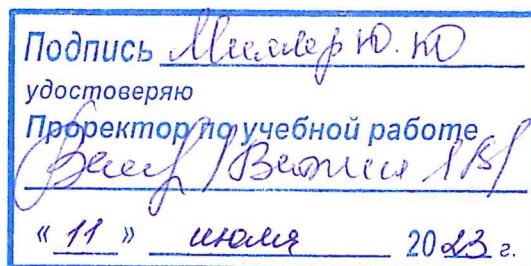 Подпись Миллер Ю. Ю
удостоверяю
Проректор по учебной работе
« 11 » июля 2023 г.